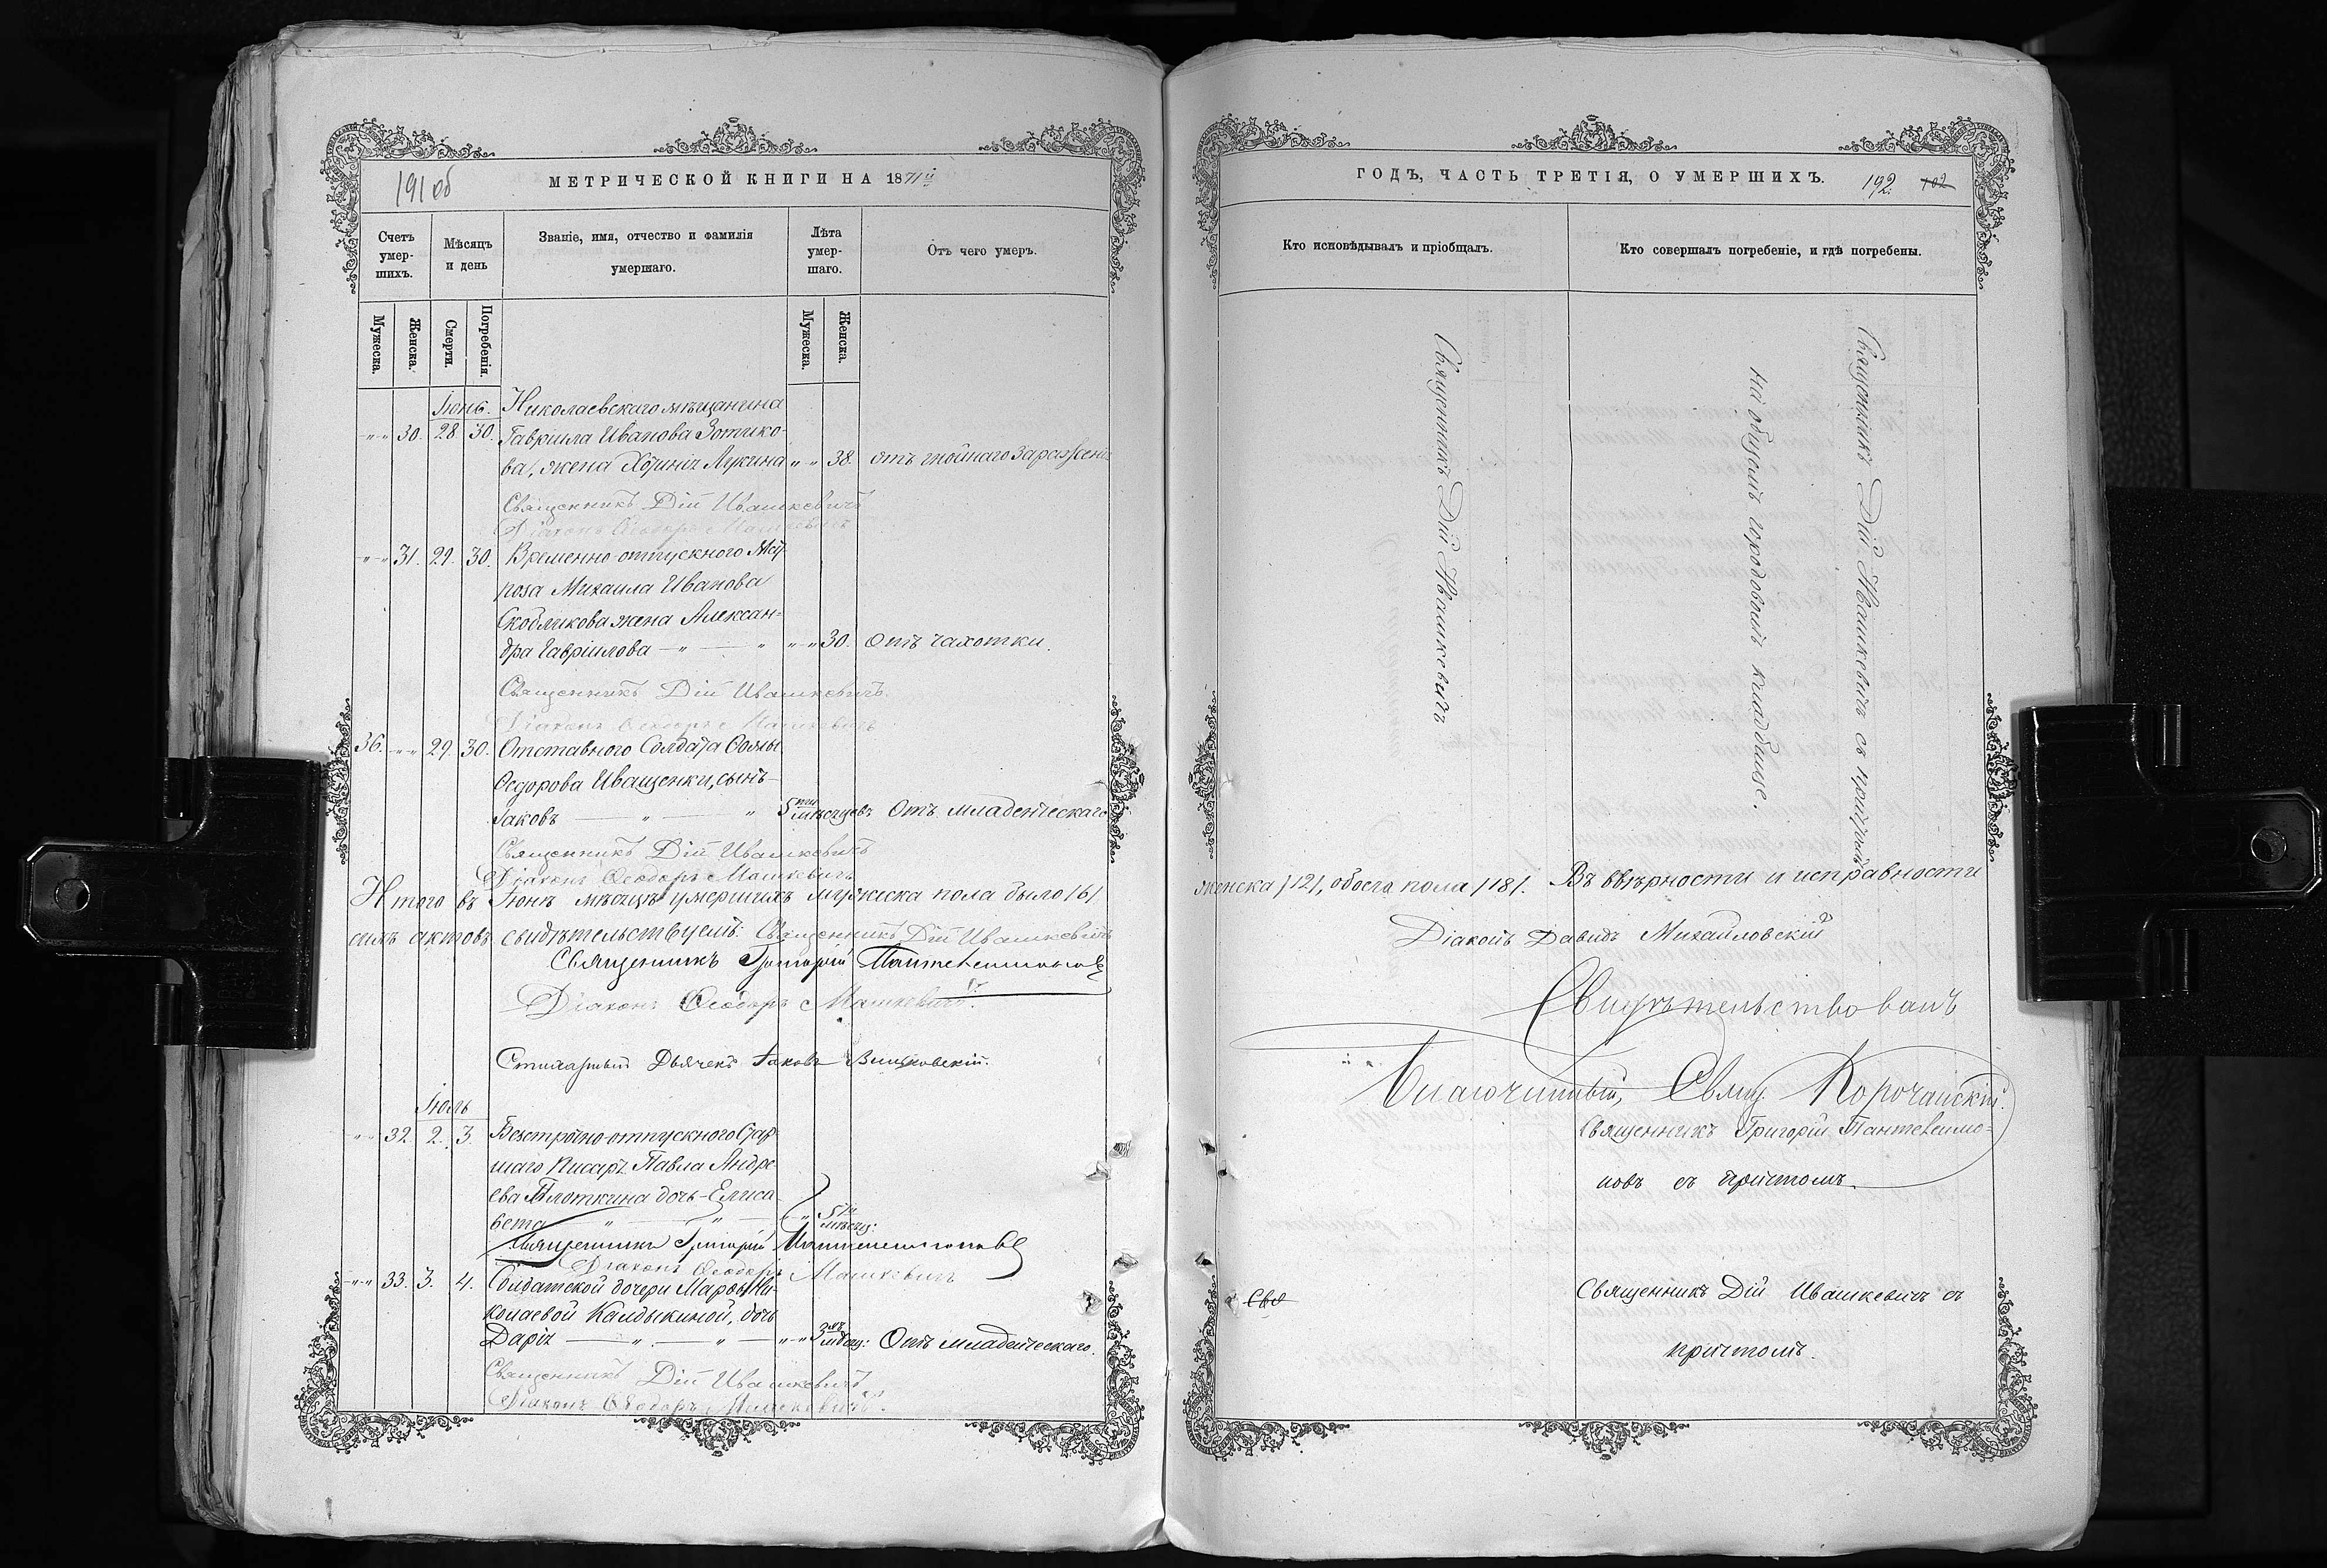 191 об
МЕТРИЧЕСКОЙ КНИГИ НА 1871й
Счетъ умер-шихъ.
Мѣсяцъ и день
Званіе, имя, отчество и фамилія умершаго.
Лѣта умер-шаго.
Отъ чего умеръ.
Мужеска.
Женска.
Смерти.
Погребенія.
Мужеска.
Женска.
Іюнь.
Николаевскаго мѣщанина
"-" 30. 28. 30. Гавріила Иванова Зотико-
ва, жена Лукина " " 38. отъ гнойнаго зараженія
Священникъ Дій Ивашкевичъ
Діаконъ Ѳеодоръ Машкевичъ
"-" 31. 29. 30. Временно-отпускного Мат
роза Михаила Иванова
Скобликова жена Алексан-
дра Гавріилова — " — " " " 30. Отъ чахотки.
Священникъ Дій Ивашкевичъ.
Діаконъ Ѳеодоръ Машкевичъ
36. "-" 29. 30. Отставного Солдата Ѳомы
Ѳедорова Иващенки, сынъ-
Іаковъ — " — " 5ти мѣсяцевъ Отъ младенческаго
Священникъ Дій Ивашкевичъ
Діаконъ Ѳеодоръ Машкевичъ
Итого въ Іюнѣ мѣсяцѣ умершихъ мужеска пола было /6/
симъ актовъ свидѣтельствуемъ: Священникъ Дій Ивашкевичъ
Священникъ Григорій Пантелеимоновъ
Діаконъ Ѳеодоръ Машкевичъ.
Стихарный Дьячекъ Іаковъ
Іюль
"-" 32. 2. 3. Безсрочно-отпускного Стар
шаго Писаря Павла Андре
ева Плоткина дочь-Елиса
вета — " — " — " " 5ти мѣсяц:
Священникъ Григорій Пантелеимоновъ
Діаконъ Ѳеодоръ Машкевичъ
"-" 33. 3. 4. Солдатской дочери Марѳы Ни-
колаевой Калдыкиной, дочь
Дарія — " — " — " " 3хъ мѣсяц: Отъ младенческаго.
Священникъ Дій Ивашкевичъ
Діаконъ Ѳеодоръ Машкевичъ.
ГОДЪ, ЧАСТЬ ТРЕТІЯ, О УМЕРШИХЪ.
192. 102
Кто исповѣдывалъ и пріобщалъ.
Кто совершалъ погребеніе, и гдѣ погребены.
Священникъ Дій Ивашкевичъ
Священникъ Дій Ивашкевичъ съ причтомъ
на общемъ городовомъ кладбищѣ.
женска /12/, обоего пола /18/. Въ вѣрности и исправности
Діаконъ Давидъ Михайловскій
Свидѣтельствовалъ
Благочинный, Свящ. Корочанскій.
Священникъ Григорій Пантелеимо-
новъ съ причтомъ.
Свя
Священникъ Дій Ивашкевичъ съ
причтомъ.